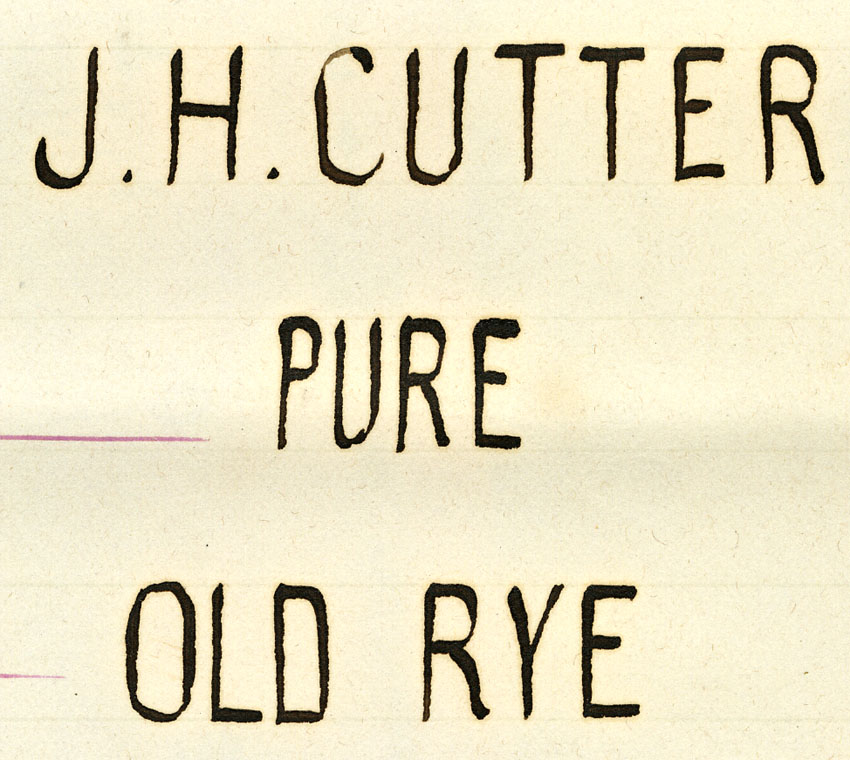 J.H.CUTTER
PURE
OLD RYE